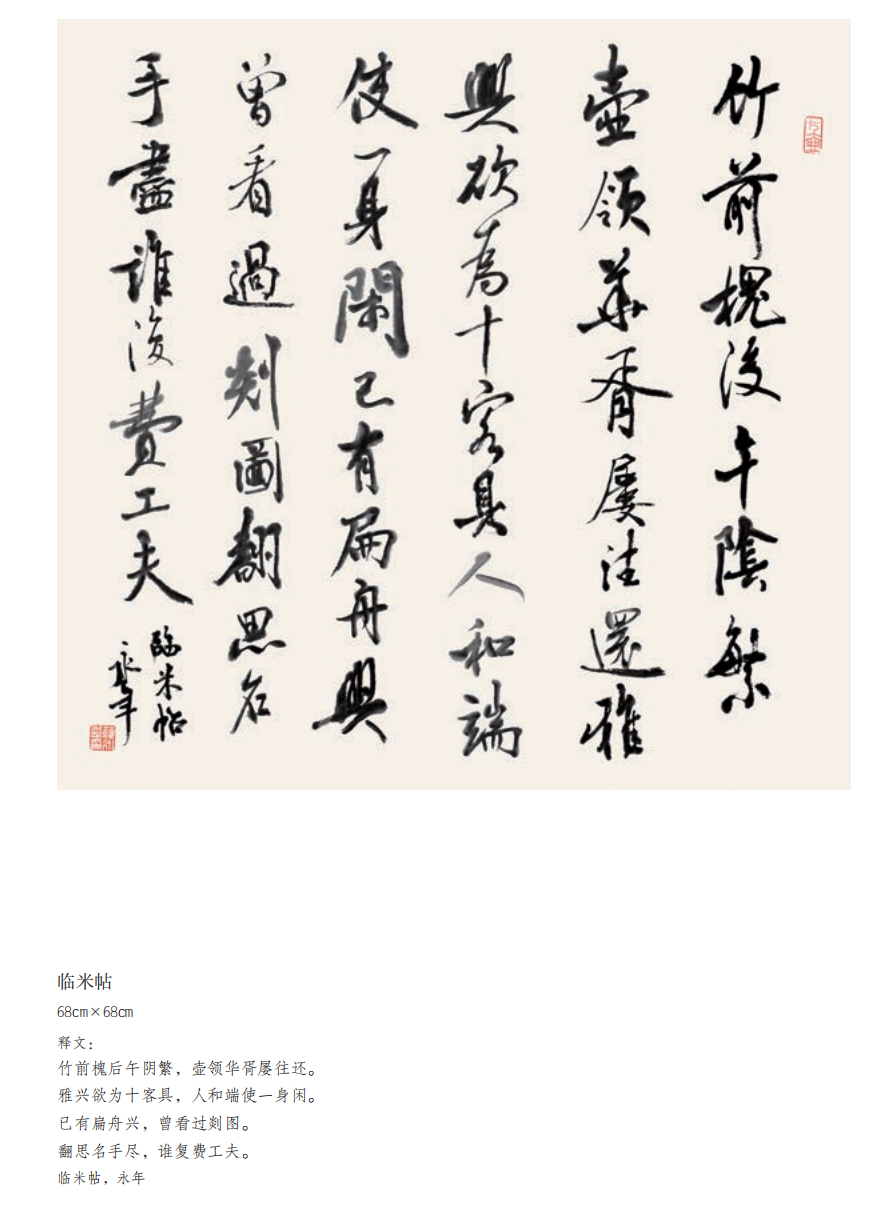 竹前槐後午陰繁
壺領華胥屡往還雅
興欲為十客具人和端
使一身閑已有扁舟興
曾看過剡圖翻思名
手盡誰復費工夫
臨米帖
永年
临米帖
68cm×68cm
释文：
竹前槐后午阴繁，壶领华胥屡往还。
雅兴欲为十客具，人和端使一身闲。
已有扁舟兴，曾看过剡图。
翻思名手尽，谁复费工夫。
临米帖，永年